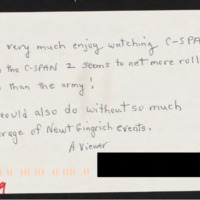 very much enjoy watching C-SPA
the C-SPAN 2 seems to net more roll
than the army!
ould also do without so much
erage of Newt Gingrich events.
A Viewer
9